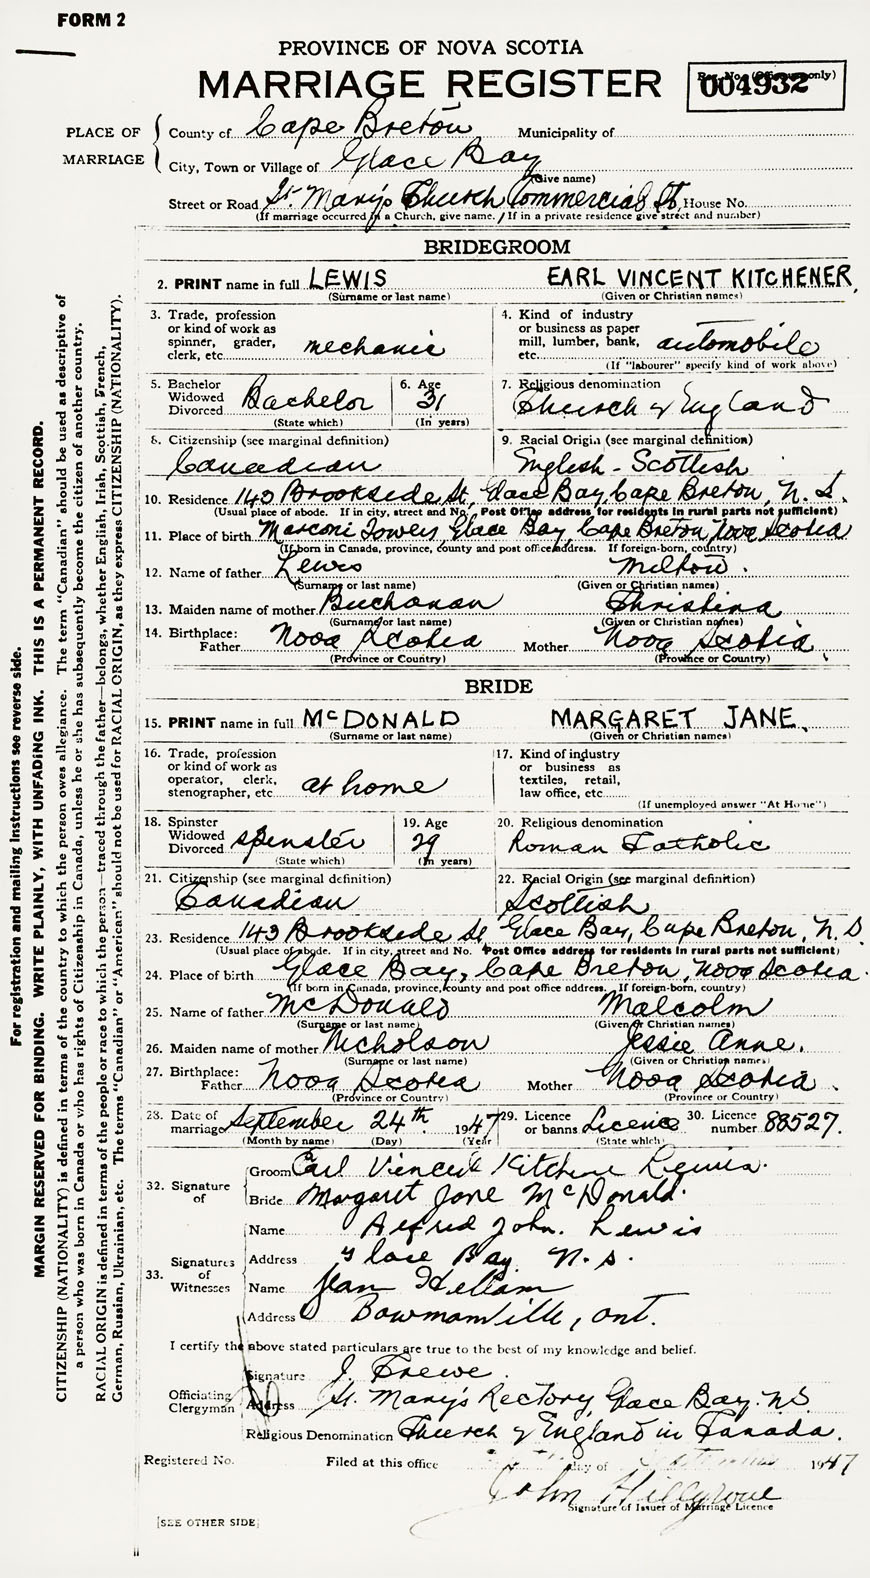 FORM 2
PROVINCE OF NOVA SCOTIA
MARRIAGE REGISTER
004932
PLACE OF MARRIAGE
County of Cape Breton Municipality of
City, Town or Village of Glace Bay
(Give name)
Street or Road St. Mary's Church Commercial St, House No.
(If marriage occurred in a Church, give name. If in a private residence give street and number)
BRIDEGROOM
2. PRINT name in full LEWIS EARL VINCENT KITCHENER
(Surname or last name) (Given or Christian names)
3. Trade, profession or kind of work as spinner, grader, clerk, etc. mechanic
4. Kind of industry or business as paper mill, lumber, bank, etc. automobile
(If "labourer" specify kind of work above)
5. Bachelor Widowed Divorced Bachelor
(State which)
6. Age 31
(In years)
7. Religious denomination
Church of England
8. Citizenship (see marginal definition)
Canadian
9. Racial Origin (see marginal definition)
English - Scottish
10. Residence 143 Brookside St, Glace Bay, Cape Breton, N. S.
(Usual place of abode. If in city, street and No. Post Office address for residents in rural parts not sufficient)
11. Place of birth Marconi Towers, Glace Bay, Cape Breton, Nova Scotia
(If born in Canada, province, county and post office address. If foreign-born, country)
12. Name of father Lewis Milton.
(Surname or last name) (Given or Christian names)
13. Maiden name of mother Buchanan Christina
(Surname or last name) (Given or Christian names)
14. Birthplace: Father Nova Scotia Mother Nova Scotia
(Province or Country) (Province or Country)
BRIDE
15. PRINT name in full McDONALD MARGARET JANE
(Surname or last name) (Given or Christian names)
16. Trade, profession or kind of work as operator, clerk, stenographer, etc. at home
17. Kind of industry or business as textiles, retail, law office, etc.
(If unemployed answer "At Home")
18. Spinster Widowed Divorced spinster
(State which)
19. Age 29
(In years)
20. Religious denomination
Roman Catholic
21. Citizenship (see marginal definition)
Canadian
22. Racial Origin (see marginal definition)
Scottish
23. Residence 143 Brookside St Glace Bay, Cape Breton, N. S.
(Usual place of abode. If in city, street and No. Post Office address for residents in rural parts not sufficient)
24. Place of birth Glace Bay, Cape Breton, Nova Scotia
(If born in Canada, province, county and post office address. If foreign-born, country)
25. Name of father McDonald Malcolm
(Surname or last name) (Given or Christian names)
26. Maiden name of mother Nicholson Jessie Anne.
(Surname or last name) (Given or Christian names)
27. Birthplace: Father Nova Scotia Mother Nova Scotia
(Province or Country) (Province or Country)
28. Date of marriage September 24th 1947 29. Licence or banns Licence 30. Licence number 88527.
(Month by name) (Day) (Year) (State which)
32. Signature of
Groom Earl Vincent Kitchener Lewis.
Bride Margaret Jane McDonald.
33. Signatures of Witnesses
Name Alfred John. Lewis
Address Glace Bay N. S.
Name Jean
Address Bowmanville, Ont.
I certify the above stated particulars are true to the best of my knowledge and belief.
Officiating Clergyman
Signature
Address St. Mary's Rectory, Glace Bay. NS
Religious Denomination Church of England in Canada.
Registered No. Filed at this office day of September 1947
John
Signature of Issuer of Marriage Licence
[SEE OTHER SIDE]
For registration and mailing instructions see reverse side.
MARGIN RESERVED FOR BINDING. WRITE PLAINLY, WITH UNFADING INK. THIS IS A PERMANENT RECORD.
CITIZENSHIP (NATIONALITY) is defined in terms of the country to which the person owes allegiance. The term "Canadian" should be used as descriptive of
a person who was born in Canada or who has rights of Citizenship in Canada, unless he or she has subsequently become the citizen of another country.
RACIAL ORIGIN is defined in terms of the people or race to which the person—traced through the father—belongs, whether English, Irish, Scottish, French,
German, Russian, Ukrainian, etc. The terms "Canadian" or "American" should not be used for RACIAL ORIGIN, as they express CITIZENSHIP (NATIONALITY).